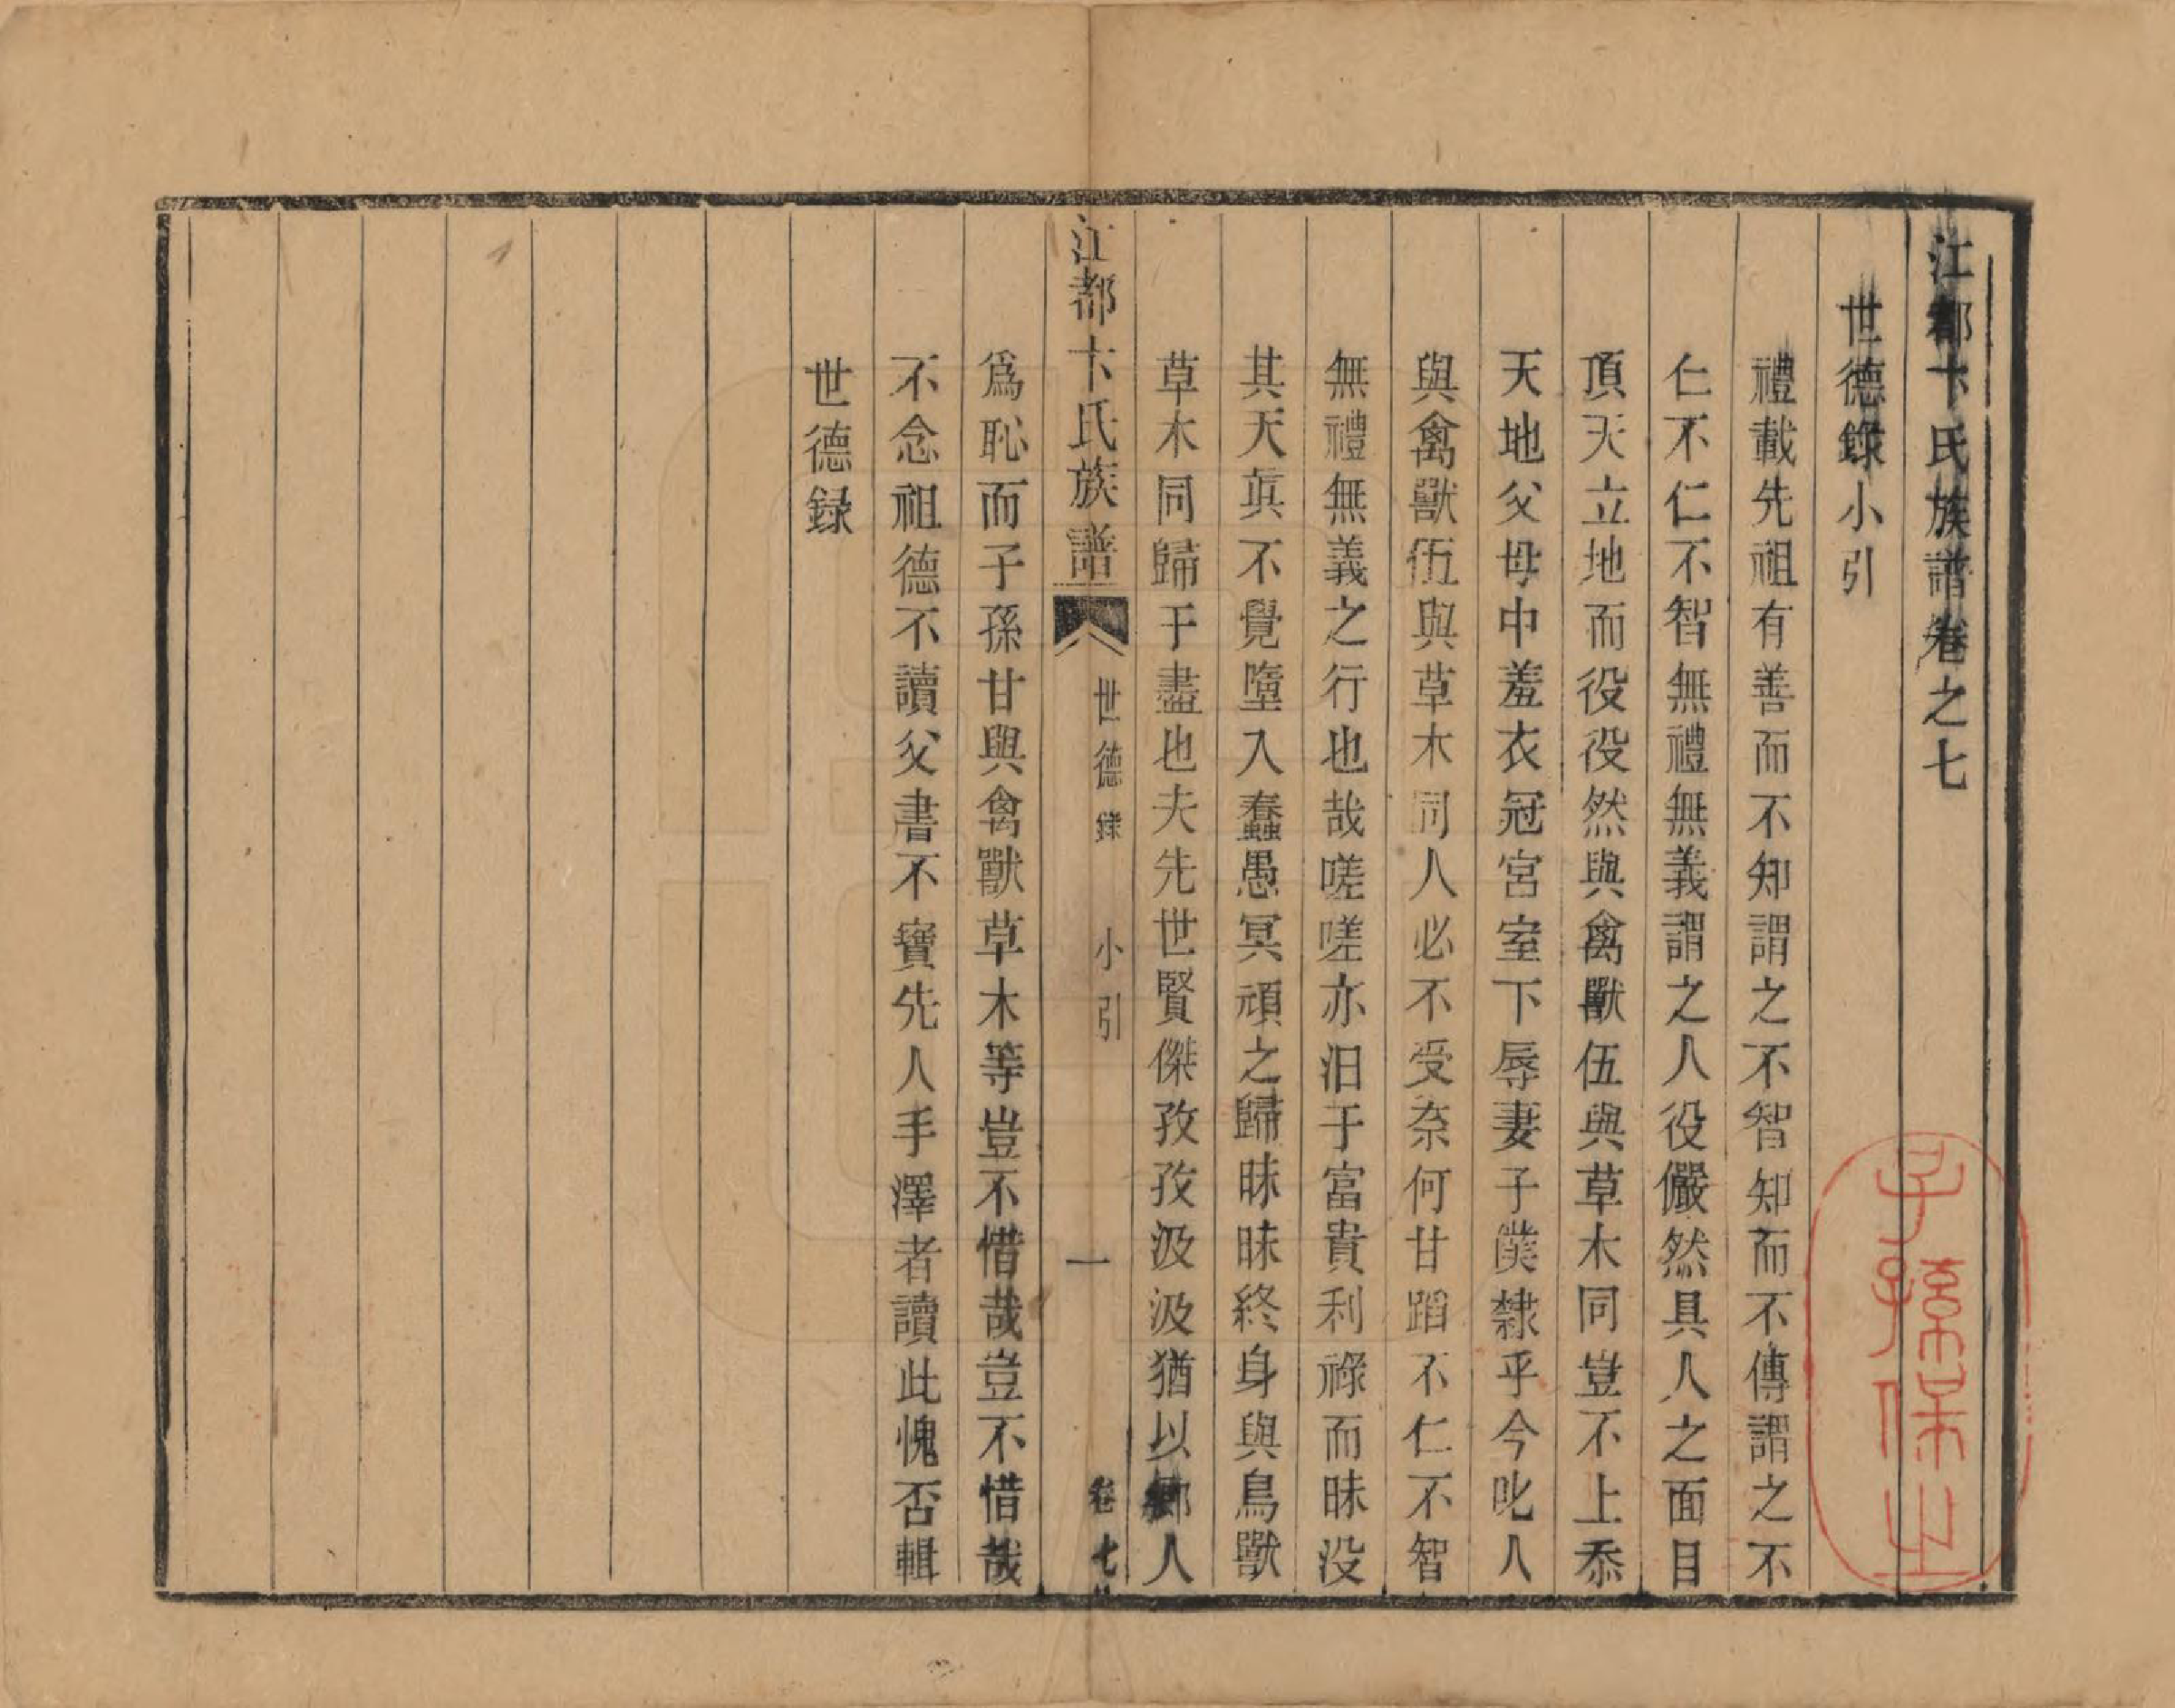 江都卞氏族譜卷之七
世德錄小引
禮載先祖有善而不知謂之不智知而不傳謂之不
仁不仁不智無禮無義謂之人役儼然具人之面目
頂天立地而役役然與禽獸伍與草木同豈不上忝
天地父母中羞衣冠宮室下辱妻子僕隸乎今叱人
與禽獸伍與草木同人必不受奈何甘蹈不仁不智
無禮無義之行也哉嗟嗟亦汩于富貴利祿而昧没
其天眞不覺墮入蠢愚冥頑之歸昧昧終身與鳥獸
草木同歸于盡也夫先世賢傑孜孜汲汲猶以鄉人
江都卞氏族譜
世德錄
小引
一
卷七
爲恥而子孫甘與禽獸草木等豈不惜哉豈不惜哉
不念祖德不讀父書不寶先人手澤者讀此愧否輯
世德録
子孫保之